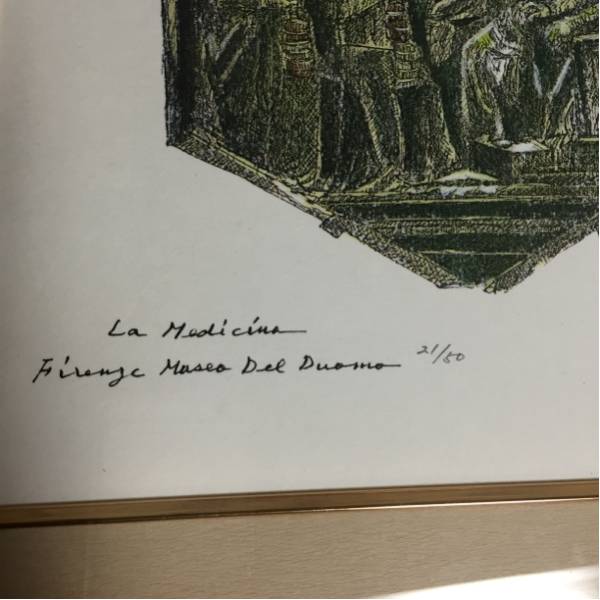 La Medicina
Firenze Museo Del Duomo 21/50